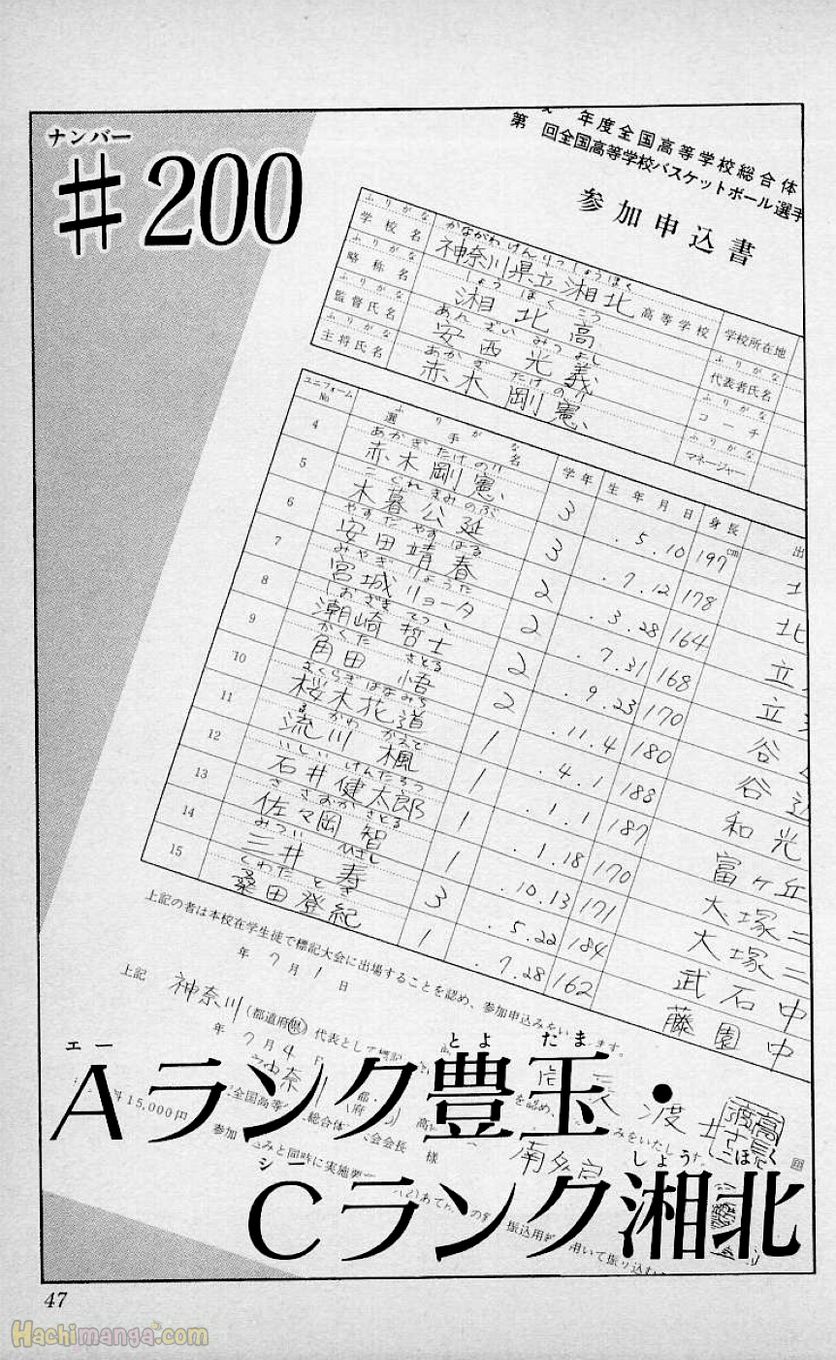 ナンバー
#200
年度全国高等学校総合体
第 回全国高等学校バスケットボール選手
参加申込書
ふりがな かながわけんりつしょうほく
学校名 神奈川県立湘北高等学校 学校所在地
ふりがな しょうほくこう
略称名 湘北高 代表者氏名
ふりがな あんざいみつよし ふりがな
監督氏名 安西光義 コーチ
ふりがな あかぎたけのり ふりがな
主将氏名 赤木剛憲 マネージャー
ユニフォームNo ふりがな 選手名 学年 生年月日 身長cm 出
4 あかぎたけのり 赤木剛憲 3 .5.10 197
5 こぐれきみのぶ 木暮公延 3 .7.12 178 北
6 やすだやすはる 安田靖春 2 .3.28 164 立
7 みやぎりょうた 宮城リョータ 2 .7.31 168 立
8 しおざきてつし 潮崎哲士 2 .9.23 170 谷
9 かくたさとる 角田悟 2 .11.4 180 谷
10 さくらぎはなみち 桜木花道 1 .4.1 188 和光
11 るかわかえで 流川楓 1 .1.1 187 富ヶ丘
12 いしいけんたろう 石井健太郎 1 .1.18 170 大塚二
13 ささおかさとる 佐々岡智 1 .10.13 171 大塚二
14 みついひさし 三井寿 3 .5.22 184 武石中
15 くわたとき 桑田登紀 1 .7.28 162 藤園中
上記の者は本校在学生徒で標記大会に出場することを認め、参加申込みをいたします。
年7月1日
上記 神奈川(都道府県)代表として
年7月4日
神奈川
15,000円
参加
みと同時に実施要
振込用
用いて振り込む
エー とよだま
Aランク豊玉・
シー しょうほく
Cランク湘北
47
Hachimanga.com